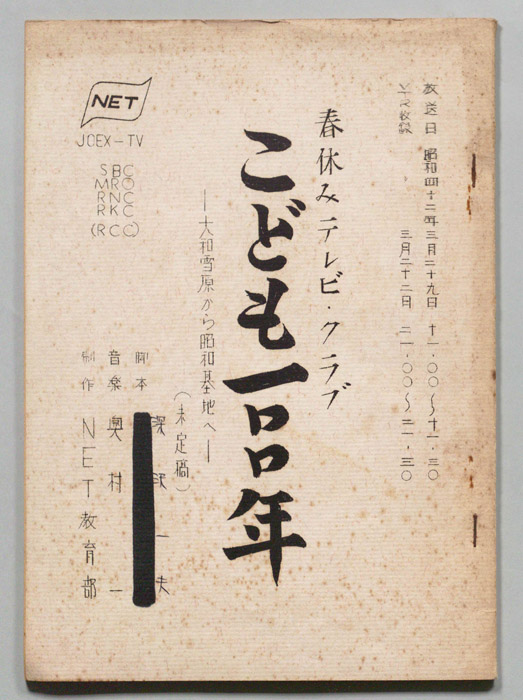 放送日 昭和四十二年三月二十九日 十一・〇〇～十一・三〇
VTR収録 三月二十二日 二一・〇〇～二一・三〇
春休みテレビ・クラブ
こども一〇〇年
―大和雪原から昭和基地へ―
(未定稿)
NET
JOEX-TV
SBC
MRO
RNC
RKC
(RCC)
脚本
音楽 奥村 一
制作 NET教育部